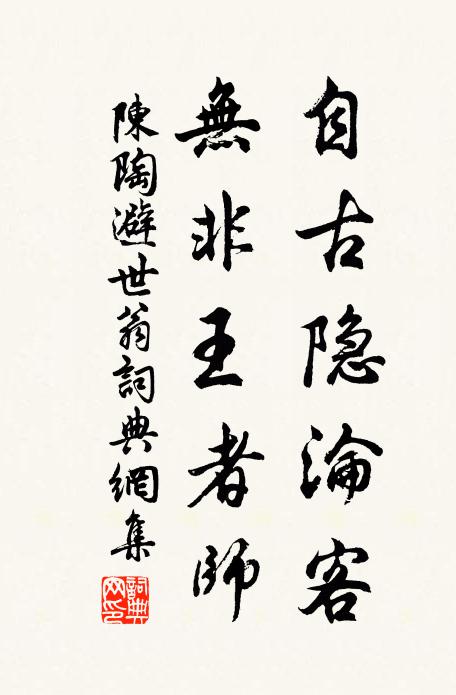 自古隐淪客
無非王者師
陳陶避世翁詞典網集
詞典网印